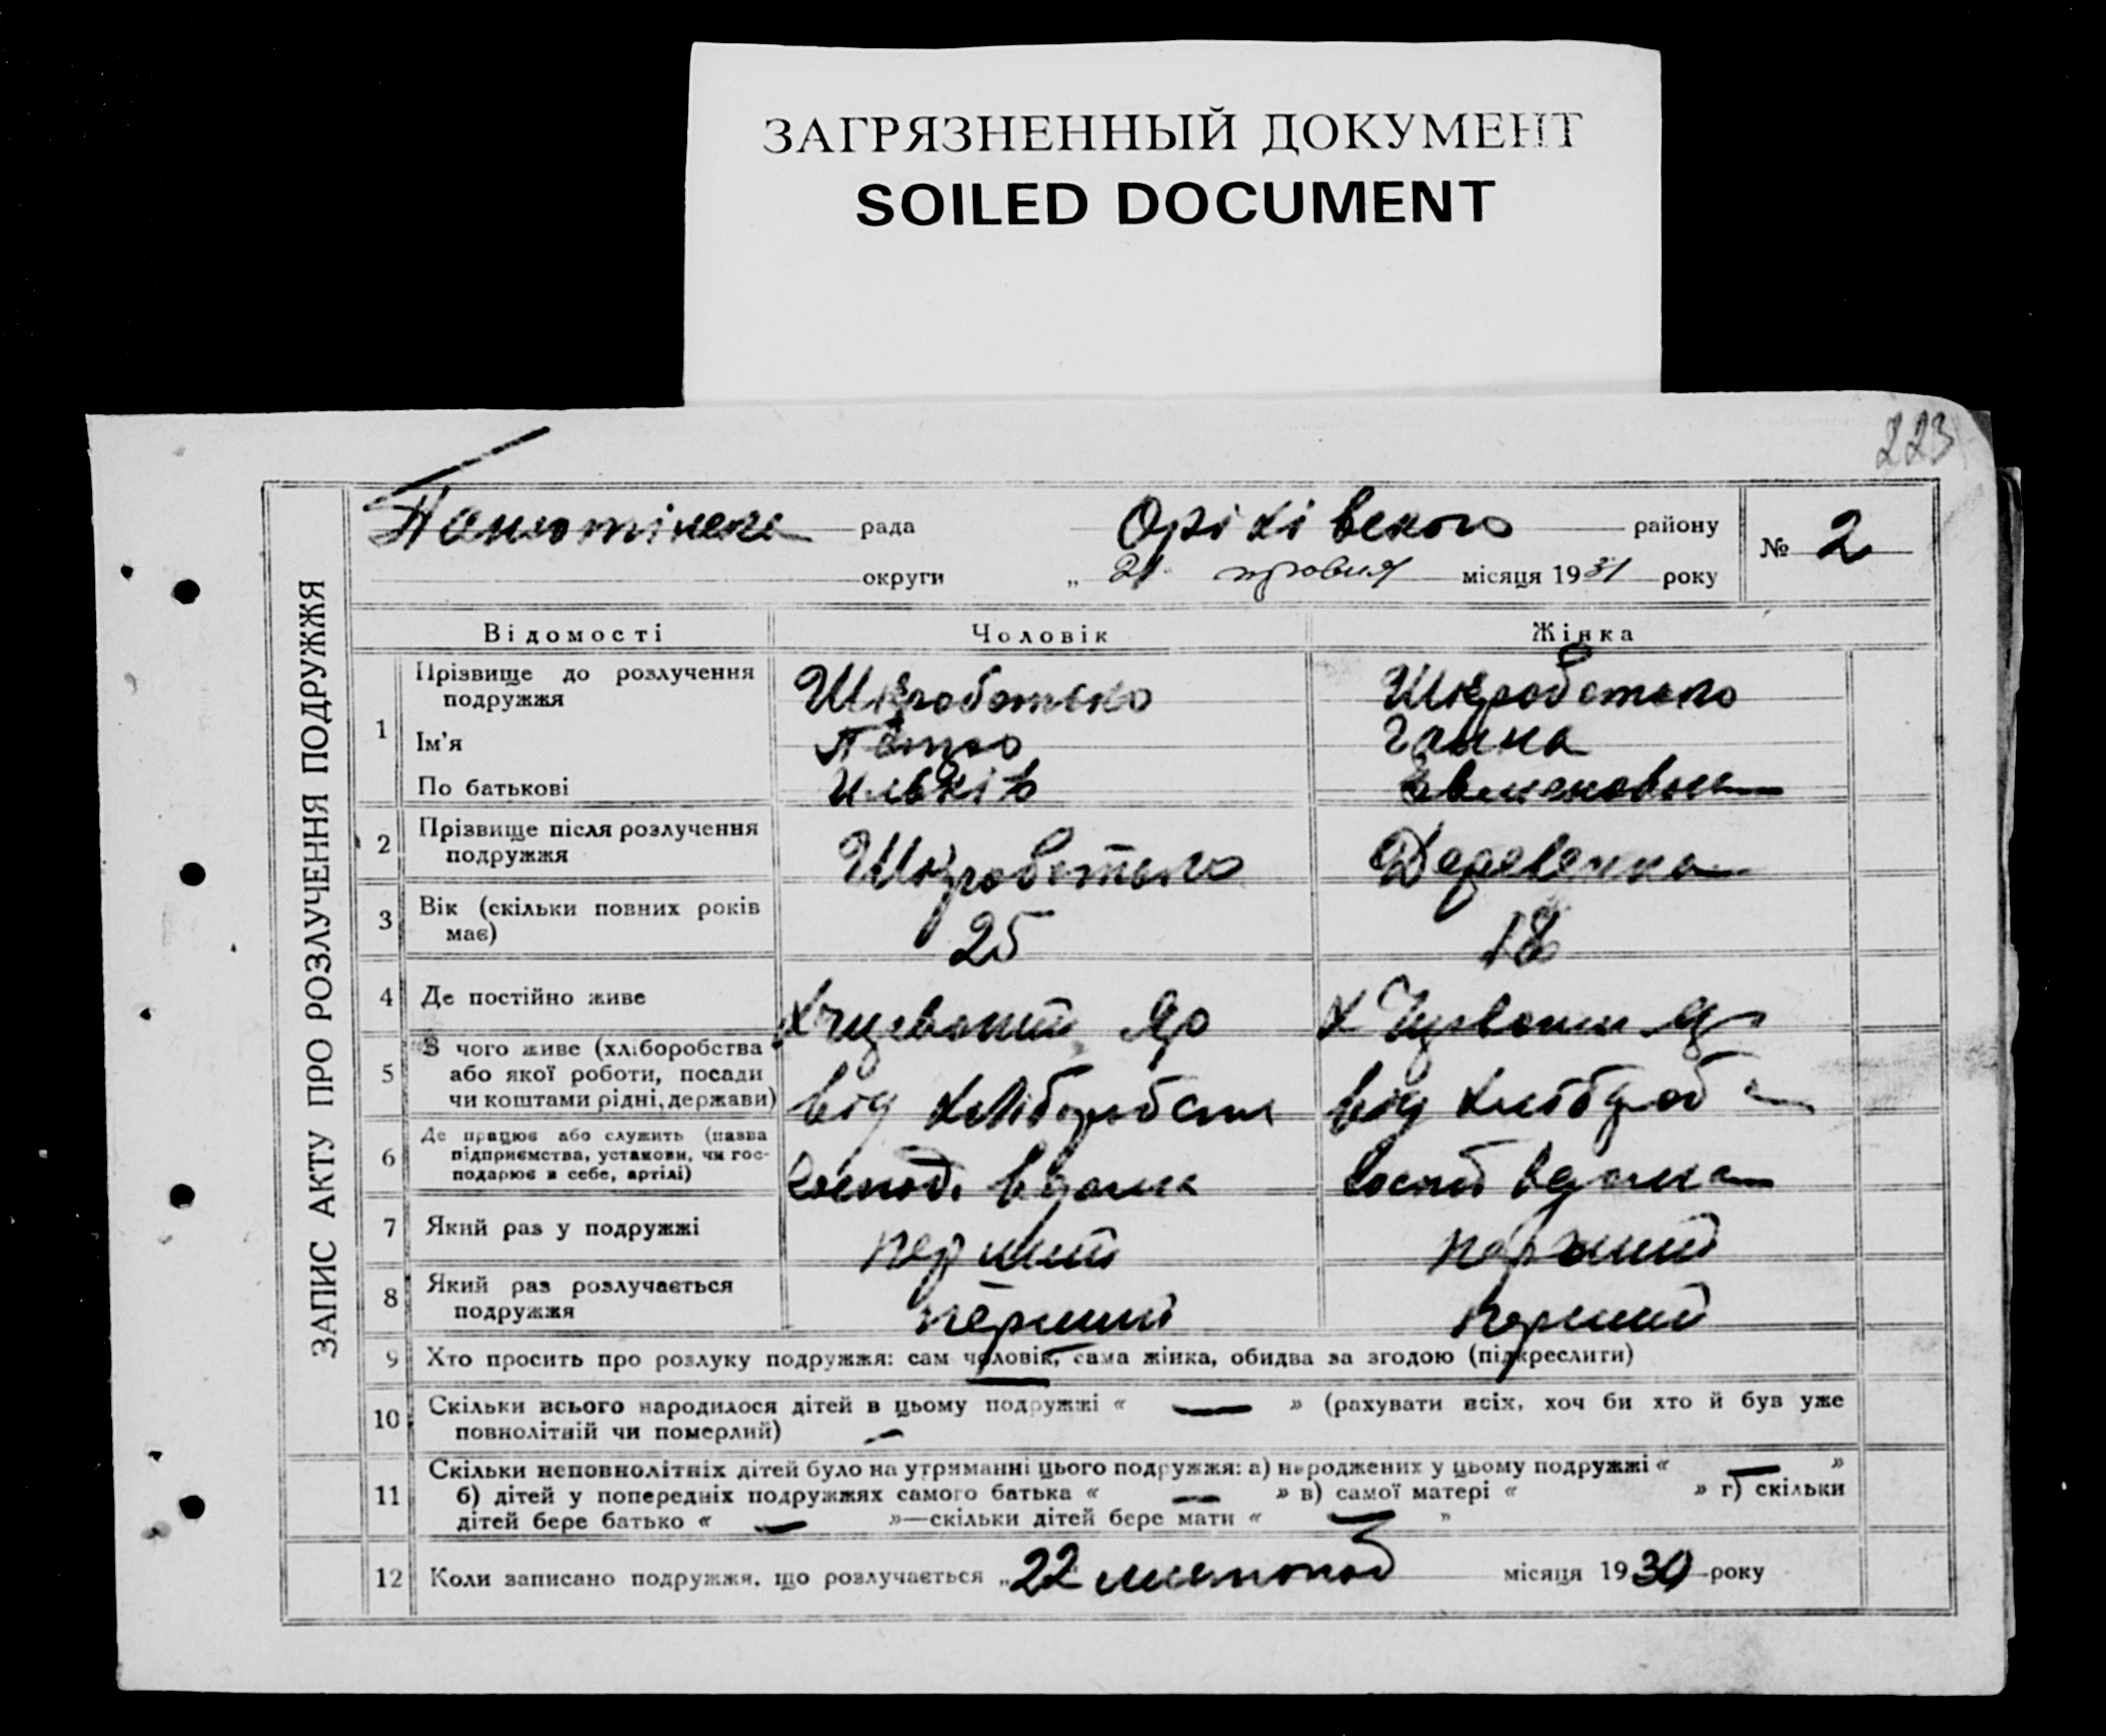 ЗАГРЯЗНЕННЫЙ ДОКУМЕНТ
SOILED DOCUMENT
223
ЗАПИС АКТУ ПРО РОЗЛУЧЕННЯ ПОДРУЖЖЯ
рада Оріхівського району
№ 2
округи „ 21 травня місяця 1931 року
Відомості Чоловік Жінка
1 Прізвище до розлучення подружжя Шкроботько Шкроботько
Ім'я Петро Ганна
По батькові Ильків
2 Прізвище після розлучення подружжя Шкроботько Деревенко
3 Вік (скільки повних років має) 25 18
4 Де постійно живе х Червоний Яр х Червоний Яр
5 З чого живе (хліборобства або якої роботи, посади чи коштами рідні, держави) від хліборобства від хлібороб
6 Де працює або служить (назва підприємства, установи, чи господарює в себе, артілі) господ. вдома господ вдома
7 Який раз у подружжі перший перший
8 Який раз розлучається подружжя перший перший
9 Хто просить про розлуку подружжя: сам чоловік, сама жінка, обидва за згодою (підкреслити)
10 Скільки всього народилося дітей в цьому подружжі « — » (рахувати всіх, хоч би хто й був уже
повнолітній чи померлий) —
11 Скільки неповнолітніх дітей було на утриманні цього подружжя: а) народжених у цьому подружжі « — »
б) дітей у попередніх подружжях самого батька « — » в) самої матері « » г) скільки
дітей бере батько « — »—скільки дітей бере мати « — »
12 Коли записано подружжя, що розлучається „ 22 листопад місяця 1930 року